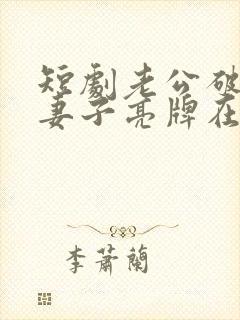 短劇老公破
妻子亮牌在
李蕭蘭